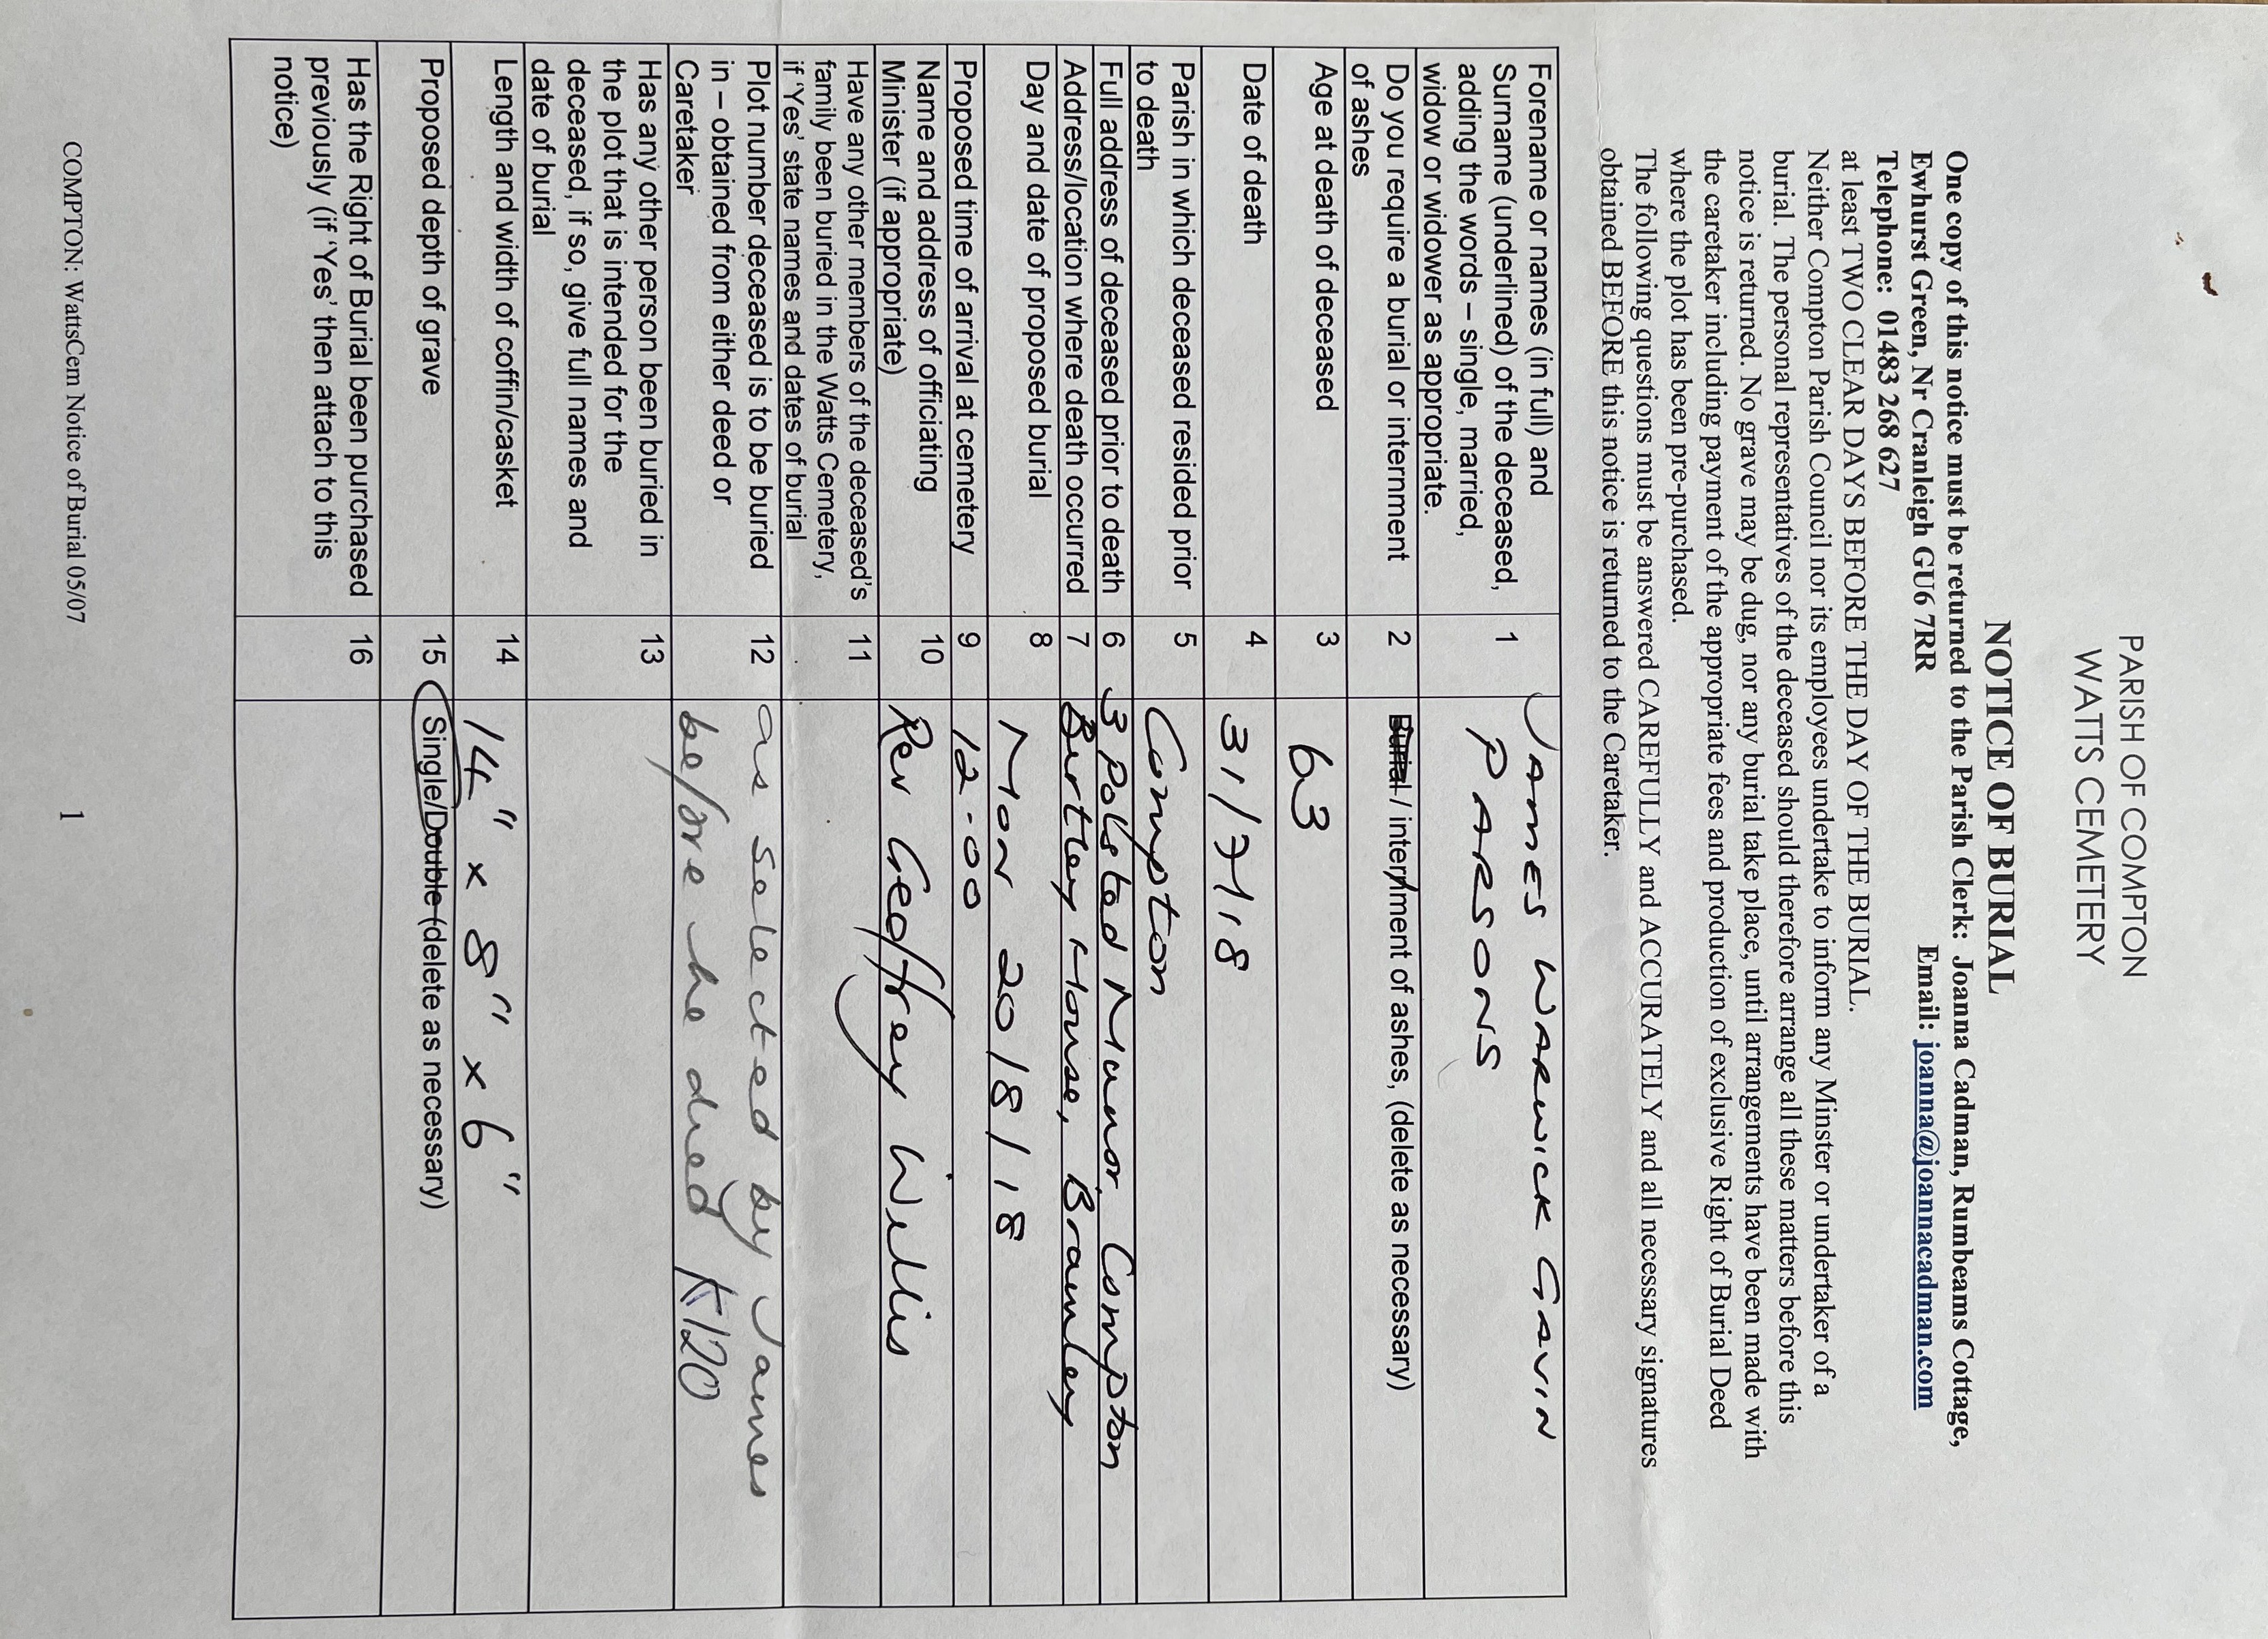 PARISH OF COMPTON
WATTS CEMETERY
NOTICE OF BURIAL
One copy of this notice must be returned to the Parish Clerk: Joanna Cadman, Rumbeams Cottage,
Ewhurst Green, Nr Cranleigh GU6 7RR Email: joanna@joannacadman.com
Telephone: 01483 268 627
at least TWO CLEAR DAYS BEFORE THE DAY OF THE BURIAL.
Neither Compton Parish Council nor its employees undertake to inform any Minster or undertaker of a
burial. The personal representatives of the deceased should therefore arrange all these matters before this
notice is returned. No grave may be dug, nor any burial take place, until arrangements have been made with
the caretaker including payment of the appropriate fees and production of exclusive Right of Burial Deed
where the plot has been pre-purchased.
The following questions must be answered CAREFULLY and ACCURATELY and all necessary signatures
obtained BEFORE this notice is returned to the Caretaker.
Forename or names (in full) and
Surname (underlined) of the deceased,
adding the words – single, married,
widow or widower as appropriate.
1
JAMES WARWICK GAVIN
PARSONS
Do you require a burial or internment
of ashes
2
Burial / internment of ashes, (delete as necessary)
Age at death of deceased
3
63
Date of death
4
31/7/18
Parish in which deceased resided prior
to death
5
Compton
Full address of deceased prior to death
6
3 Polsted Manor, Compton
Address/location where death occurred
7
Birtley House, Bramley
Day and date of proposed burial
8
Mon 20/8/18
Proposed time of arrival at cemetery
9
12-00
Name and address of officiating
Minister (if appropriate)
10
Rev Geoffrey Willis
Have any other members of the deceased's
family been buried in the Watts Cemetery,
if 'Yes' state names and dates of burial
11
Plot number deceased is to be buried
in – obtained from either deed or
Caretaker
12
as selected by James
before he died K120
Has any other person been buried in
the plot that is intended for the
deceased, if so, give full names and
date of burial
13
Length and width of coffin/casket
14
14" x 8" x 6"
Proposed depth of grave
15
Single/Double (delete as necessary)
Has the Right of Burial been purchased
previously (if 'Yes' then attach to this
notice)
16
COMPTON: WattsCem Notice of Burial 05/07 1